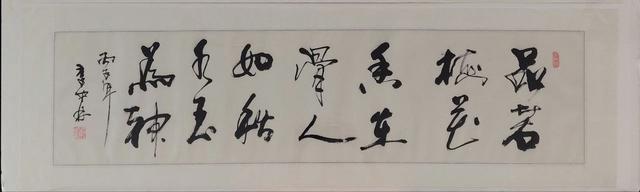 品若
梅花
香在
骨人
如秋
水玉
為神